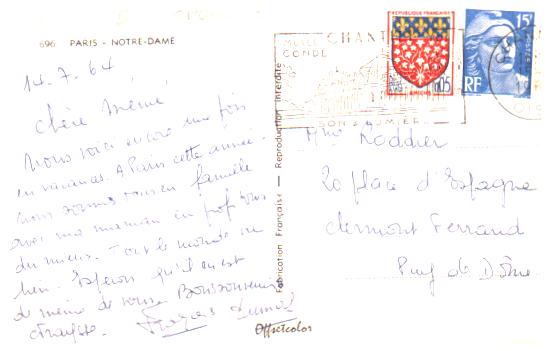 696 PARIS - NOTRE-DAME
14.7.64
Chère Mémé
Nous voici encore une fois
en vacances. A Paris cette année.
nous sommes tous en famille
avec ma maman on profitons
du mieux. Tout le monde va
bien. Espérons qu'il en est
de même de vous. Bons souvenirs
MUSÉE
CONDÉ
CHANT
SON & LUMIÈR
REPUBLIQUE FRANÇAISE
0,05
15F
POSTES
RF
Mme Roddier
20 place d'Espagne
Clermont Ferrand
Puy de Dôme
Fabrication Française - Reproduction Interdite
Offsetcolor